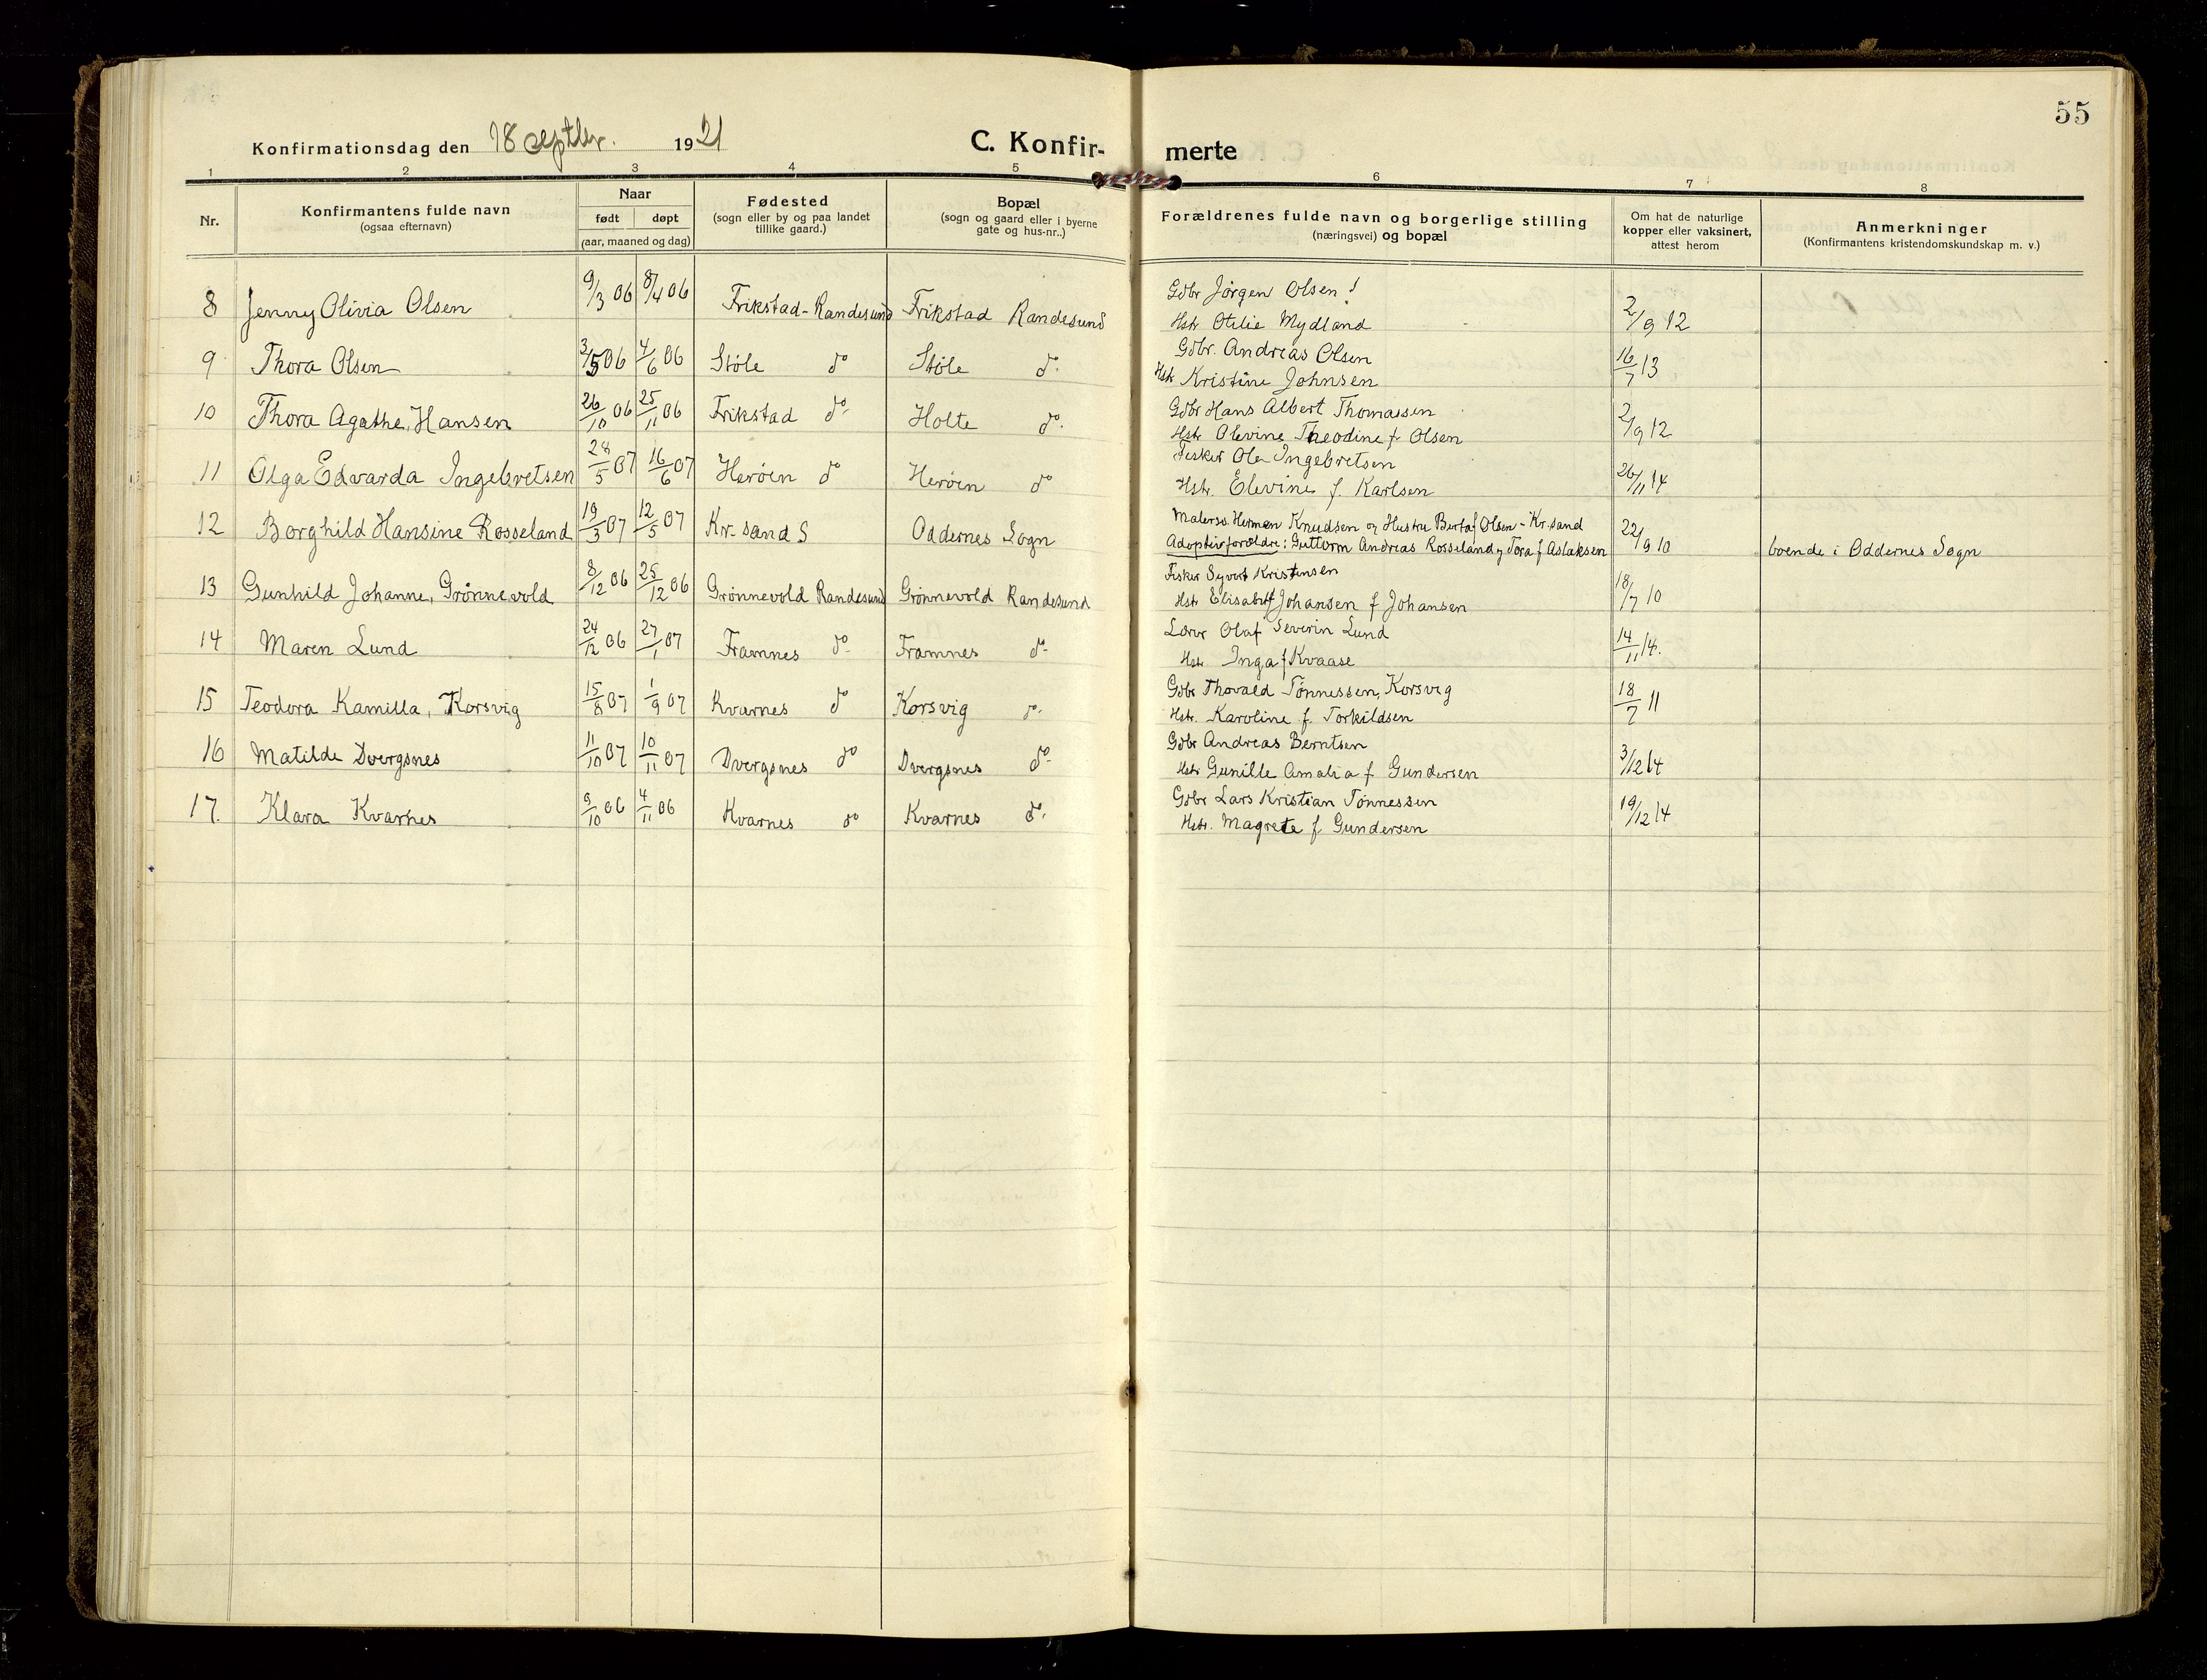 55
Konfirmationsdag den 18 septbr. 1921
C. Konfir-merte
1 2 3 4 5 6 7 8
Nr.
Konfirmantens fulde navn
(ogsaa efternavn)
Naar
født døpt
(aar, maaned og dag)
Fødested
(sogn eller by og paa landet
tillike gaard.)
Bopæl
(sogn og gaard eller i byerne
gate og hus-nr..)
Forældrenes fulde navn og borgerlige stilling
(næringsvei) og bopæl
Om hat de naturlige
kopper eller vaksinert,
attest herom
Anmerkninger
(Konfirmantens kristendomskundskap m. v.)
8 Jenny Olivia Olsen 9/3 06 8/4 06 Frikstad-Randesund Frikstad Randesund Gdbr Jørgen Olsen
Hstr Otilie Mydland 2/9 12
9 Thora Olsen 3/5 06 4/6 06 Støle do Støle do. Gdbr. Andreas Olsen
Hstr Kristine Johnsen 16/7 13
10 Thora Agathe, Hansen 26/10 06 25/11 06 Frikstad do Holte do. Gdbr Hans Albert Thomassen
Hstr Olevine Theodine f Olsen 2/9 12
11 Olga Edvarda Ingebretsen 28/5 07 16/6 07 Herøen do Herøen do Fisker Ole Ingebretsen
Hstr. Elevine f. Karlsen 26/11 14
12 Borghild Hansine Rosseland 19/3 07 12/5 07 Kr-sand S Oddernes Sogn Malersv. Herman Knudsen og Hustru Berta f Olsen - Kr.sand
Adoptivforældre: Guttorm Andreas Rosseland og Tora f Aslaksen 22/9 10 boende i Oddernes Sogn
13 Gunhild Johanne, Grønnevold 8/12 06 25/12 06 Grønnevold Randesund Grønnevold Randesund Fisker Syvert Kristensen
Hstr Elisabet Johansen f Johansen 18/7 10
14 Maren Lund 24/12 06 27/1 07 Framnes do Framnes do Lærer Olaf Severin Lund
Hstr Inga f Kvaase 14/11 14.
15 Teodora Kamilla, Korsvig 15/8 07 1/9 07 Kvarnes do Korsvig do. Gdbr Thovald Tønnessen, Korsvig
Hstr. Karoline f. Torkildsen 18/7 11
16 Matilde Dvergsnes 11/10 07 10/11 07 Dvergsnes do Dvergsnes do Gdbr Andreas Berntsen
Hstr Gunille Amalia f Gundersen 3/12 14
17. Klara Kvarnes 9/10 06 4/11 06 Kvarnes do Kvarnes do. Gdbr Lars Kristian Tønnessen
Hstr. Magrete f Gundersen 19/12 14